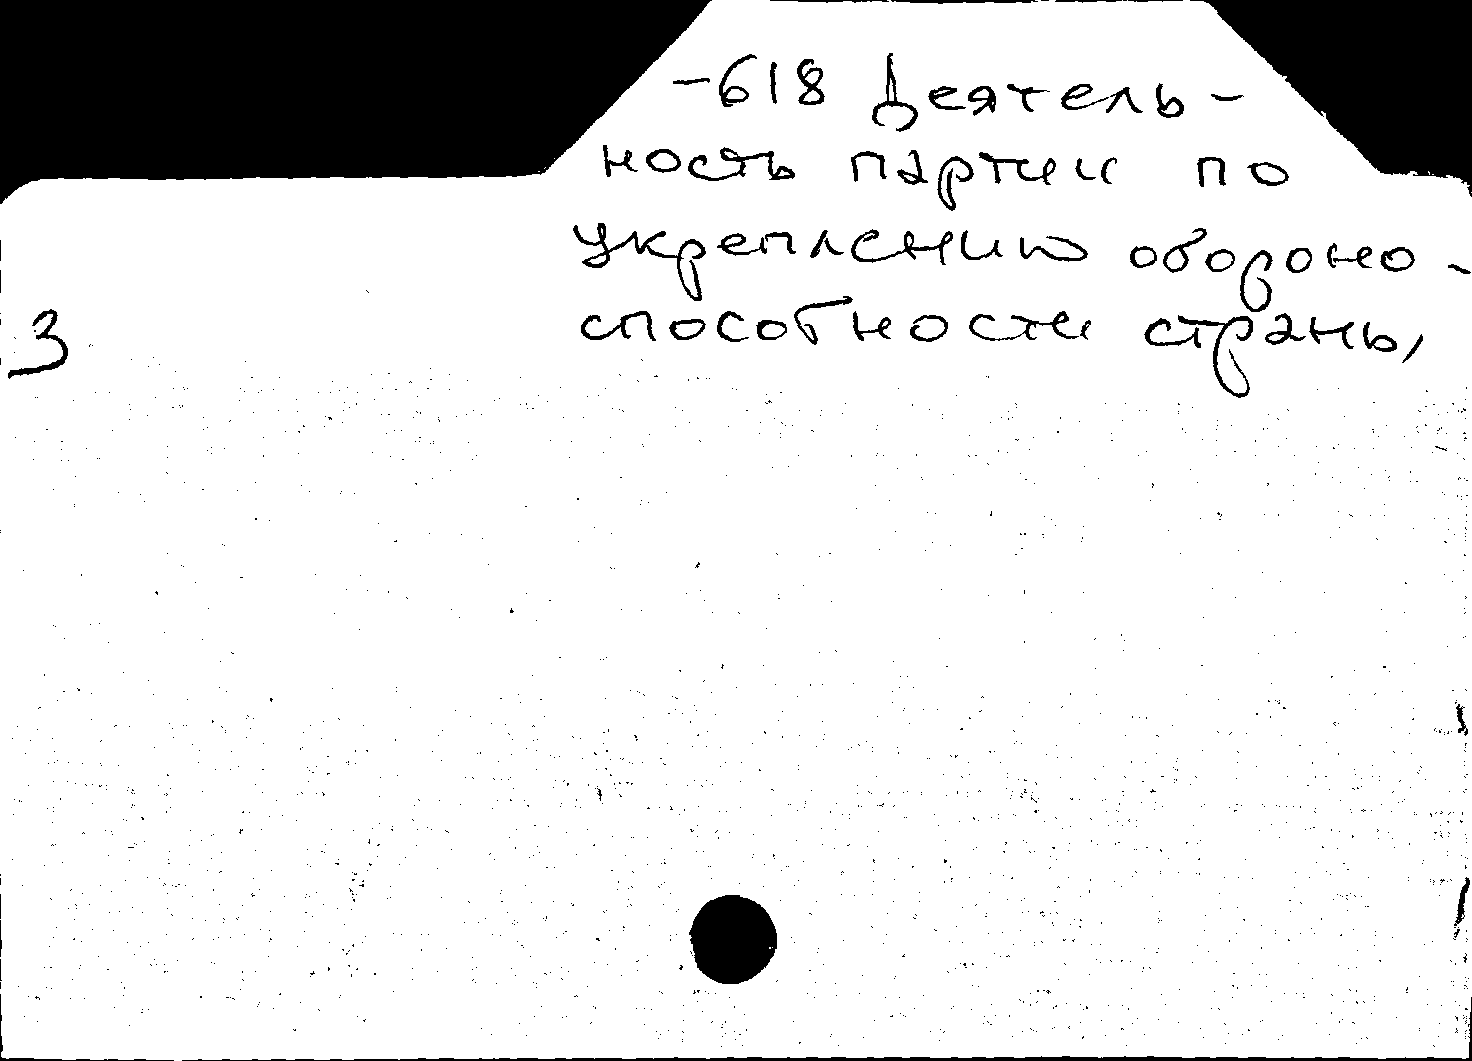 -618 Деятель-
ность партии по
укреплению обороно-
способности страны,
3